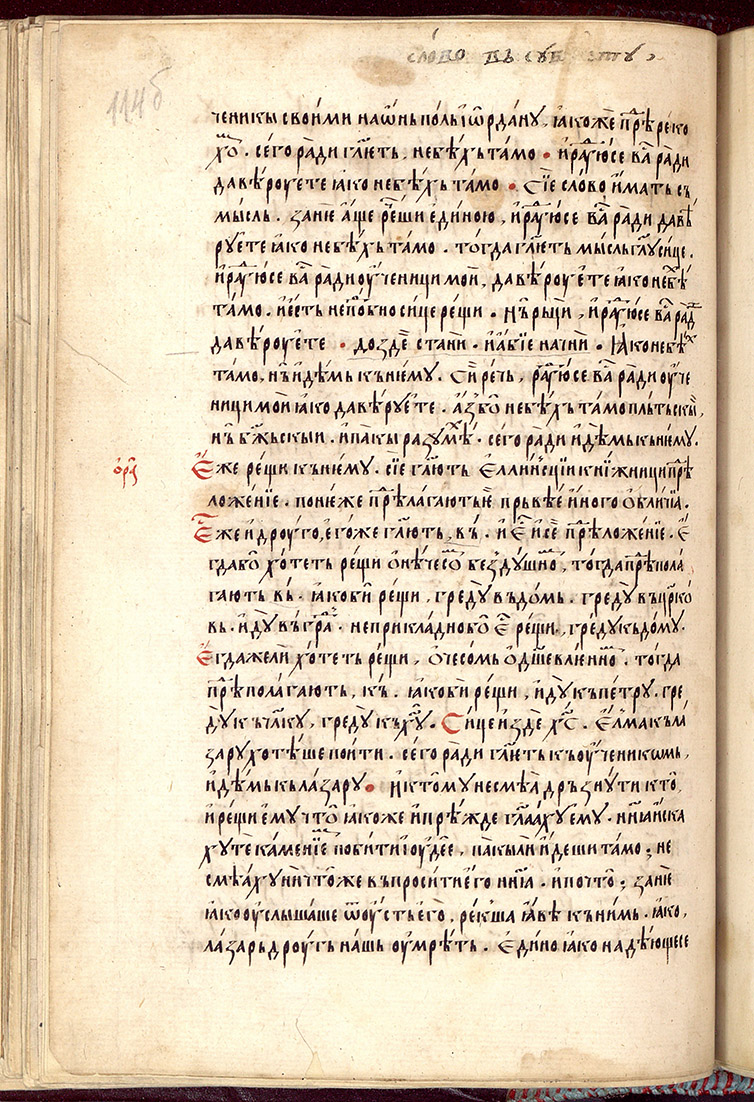 сло́во въ сꙋб зтꙋ
114б
ченикы свои́ми наѡ́нь по́лъ і҆ѡрда́нꙋ, ꙗ҆ко́же прѣ́реко
хѡ. сего̀ ра́ди гл҃ють, не бѣ́хъ та́мо • и҆ ра́дꙋюсе ва́ ради
да вѣ́роуете ꙗ҆ко не бѣ́хъ та́мо • Сїе сло́во и҆́мать съ
мысль. зани́е а҆́ще рѐши е҆ди́ною, и҆ ра́дꙋюсе ва́ ра́ди да вѣ́
рꙋете ꙗ҆ко не бѣ́хъ та́мо. тогда̀ гл҃еть мы́сль гл҃ꙋ си́це.
и҆ ра́дꙋюсе ва́ ра́ди оу҆ченици мои, да вѣ́роуете ꙗ҆ко не бѣ́
та́мо. и҆ е҆́сть непо́бно си́це рѐщи. нь рьци, и҆ ра́дꙋюсе ва́ ра́д
да вѣ́роуете • до здѐ ста́ни. и҆ а҆́бїе начни̏. ꙗ҆ко не бѣ́х
та́мо, нь и҆́дѣмь къ ни́емꙋ. Си́ рѐчь, ра́дꙋюсе ва́ ра́ди оу҆че
ници мои ꙗ҆ко да вѣ́рꙋете. а҆́з бо̀ не бѣ́хъ та́мо пльтьскы̏,
нь бж҃ьскыи. и҆ па́кы разꙋмѣ́. сего̀ ра́ди и҆́дѣмь къ ни́емꙋ.
ѻ҆́рі
Е҆́же рѐщи къ ни́емꙋ. сїе гл҃ють Е҆́ллинсции кни́жници прѣ
ложе́нїе. пони́еже прѣлага́ють е҆ прьвѣ́е и҆́ного ѻ҆бли́чїа.
Е҆́же и҆ дроу́го, е҆го́же гл҃ють, въ. и҆ е҆̀ и҆ сѐ прѣложе́нїе. Е҆
гда бо̀ хо́теть рѐщи ѻ҆ не́чесо безд꙽ꙋшно, тогда̀ прѣпола
гають въ. ꙗ҆ко би̏ рѐщи, гредꙋ̀ въ до́мь. гредꙋ̀ въ цр҃ко
вь. и҆дꙋ въ гра́. неприкла́дно бо̀ е҆̀ рѐщи, гредꙋ къ до́мꙋ.
Е҆гда́ же ли хо́теть рѐщи, ѻ҆ че́сомь ѻ҆дш҃евле́нно. тогда̀
прѣпола́гають, къ. ꙗ҆ко би̏ рѐщи, и҆дꙋ къ пе́трꙋ. гре
дꙋ къ чл҃кꙋ, гредꙋ къ хꙋ҃. Си́це и҆ здѐ хс҃. Е҆лма къ ла́
зарꙋ хотѣ́ше поити. сего̀ ра́ди гл҃еть къ оу҆ченикѡмь,
и҆́дѣмь къ ла́зарꙋ • и҆ к томꙋ не смѣ́а дрьзнꙋти кто̏,
и҆ рѐщи е҆мꙋ что̀ ꙗ҆ко́же и҆ прѣ́жде гл҃аахꙋ емꙋ. нн҃ꙗ и҆ска
хꙋ тѐ ка́менїе поби́ти і҆оуде́е, па́кы ли и҆́деши та́мо; не
смѣ́ахꙋ ничто́же въпроси́ти е҆го̀ нн҃ꙗ. и҆ почто̀; зани́е
ꙗ҆ко оу҆слы́шаше ѿ оу҆́сть е҆го̀, ре́кша ꙗ҆́вѣ къ ни́мь. ꙗ҆ко,
ла́зарь дроу́гь на́шь оу҆мрѣ́ть. Е҆ди́но ꙗ҆ко надѣ́ющесе